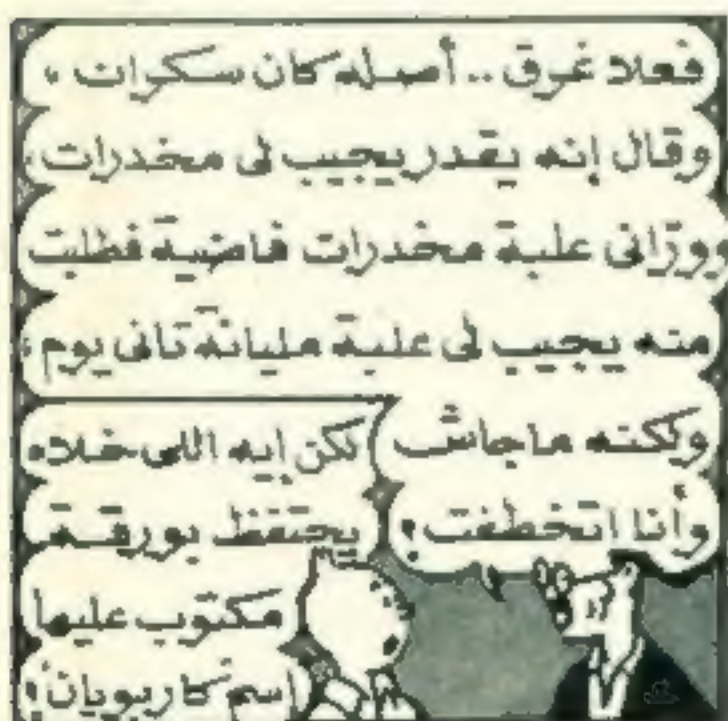 فعلا غرق .. أصله كان سكران ،
وقال إنه يقدر يجيب لى مخدرات ،
وورّانى علبة مخدرات فاضية فطلبت
منه يجيب لى علبة مليانة تانى يوم ،
ولكنه ماجاش
وأنا اتخطفت !
لكن إيه اللى خلاه
يحتفظ بورقة
مكتوب عليها
إسم كاربويان ؟